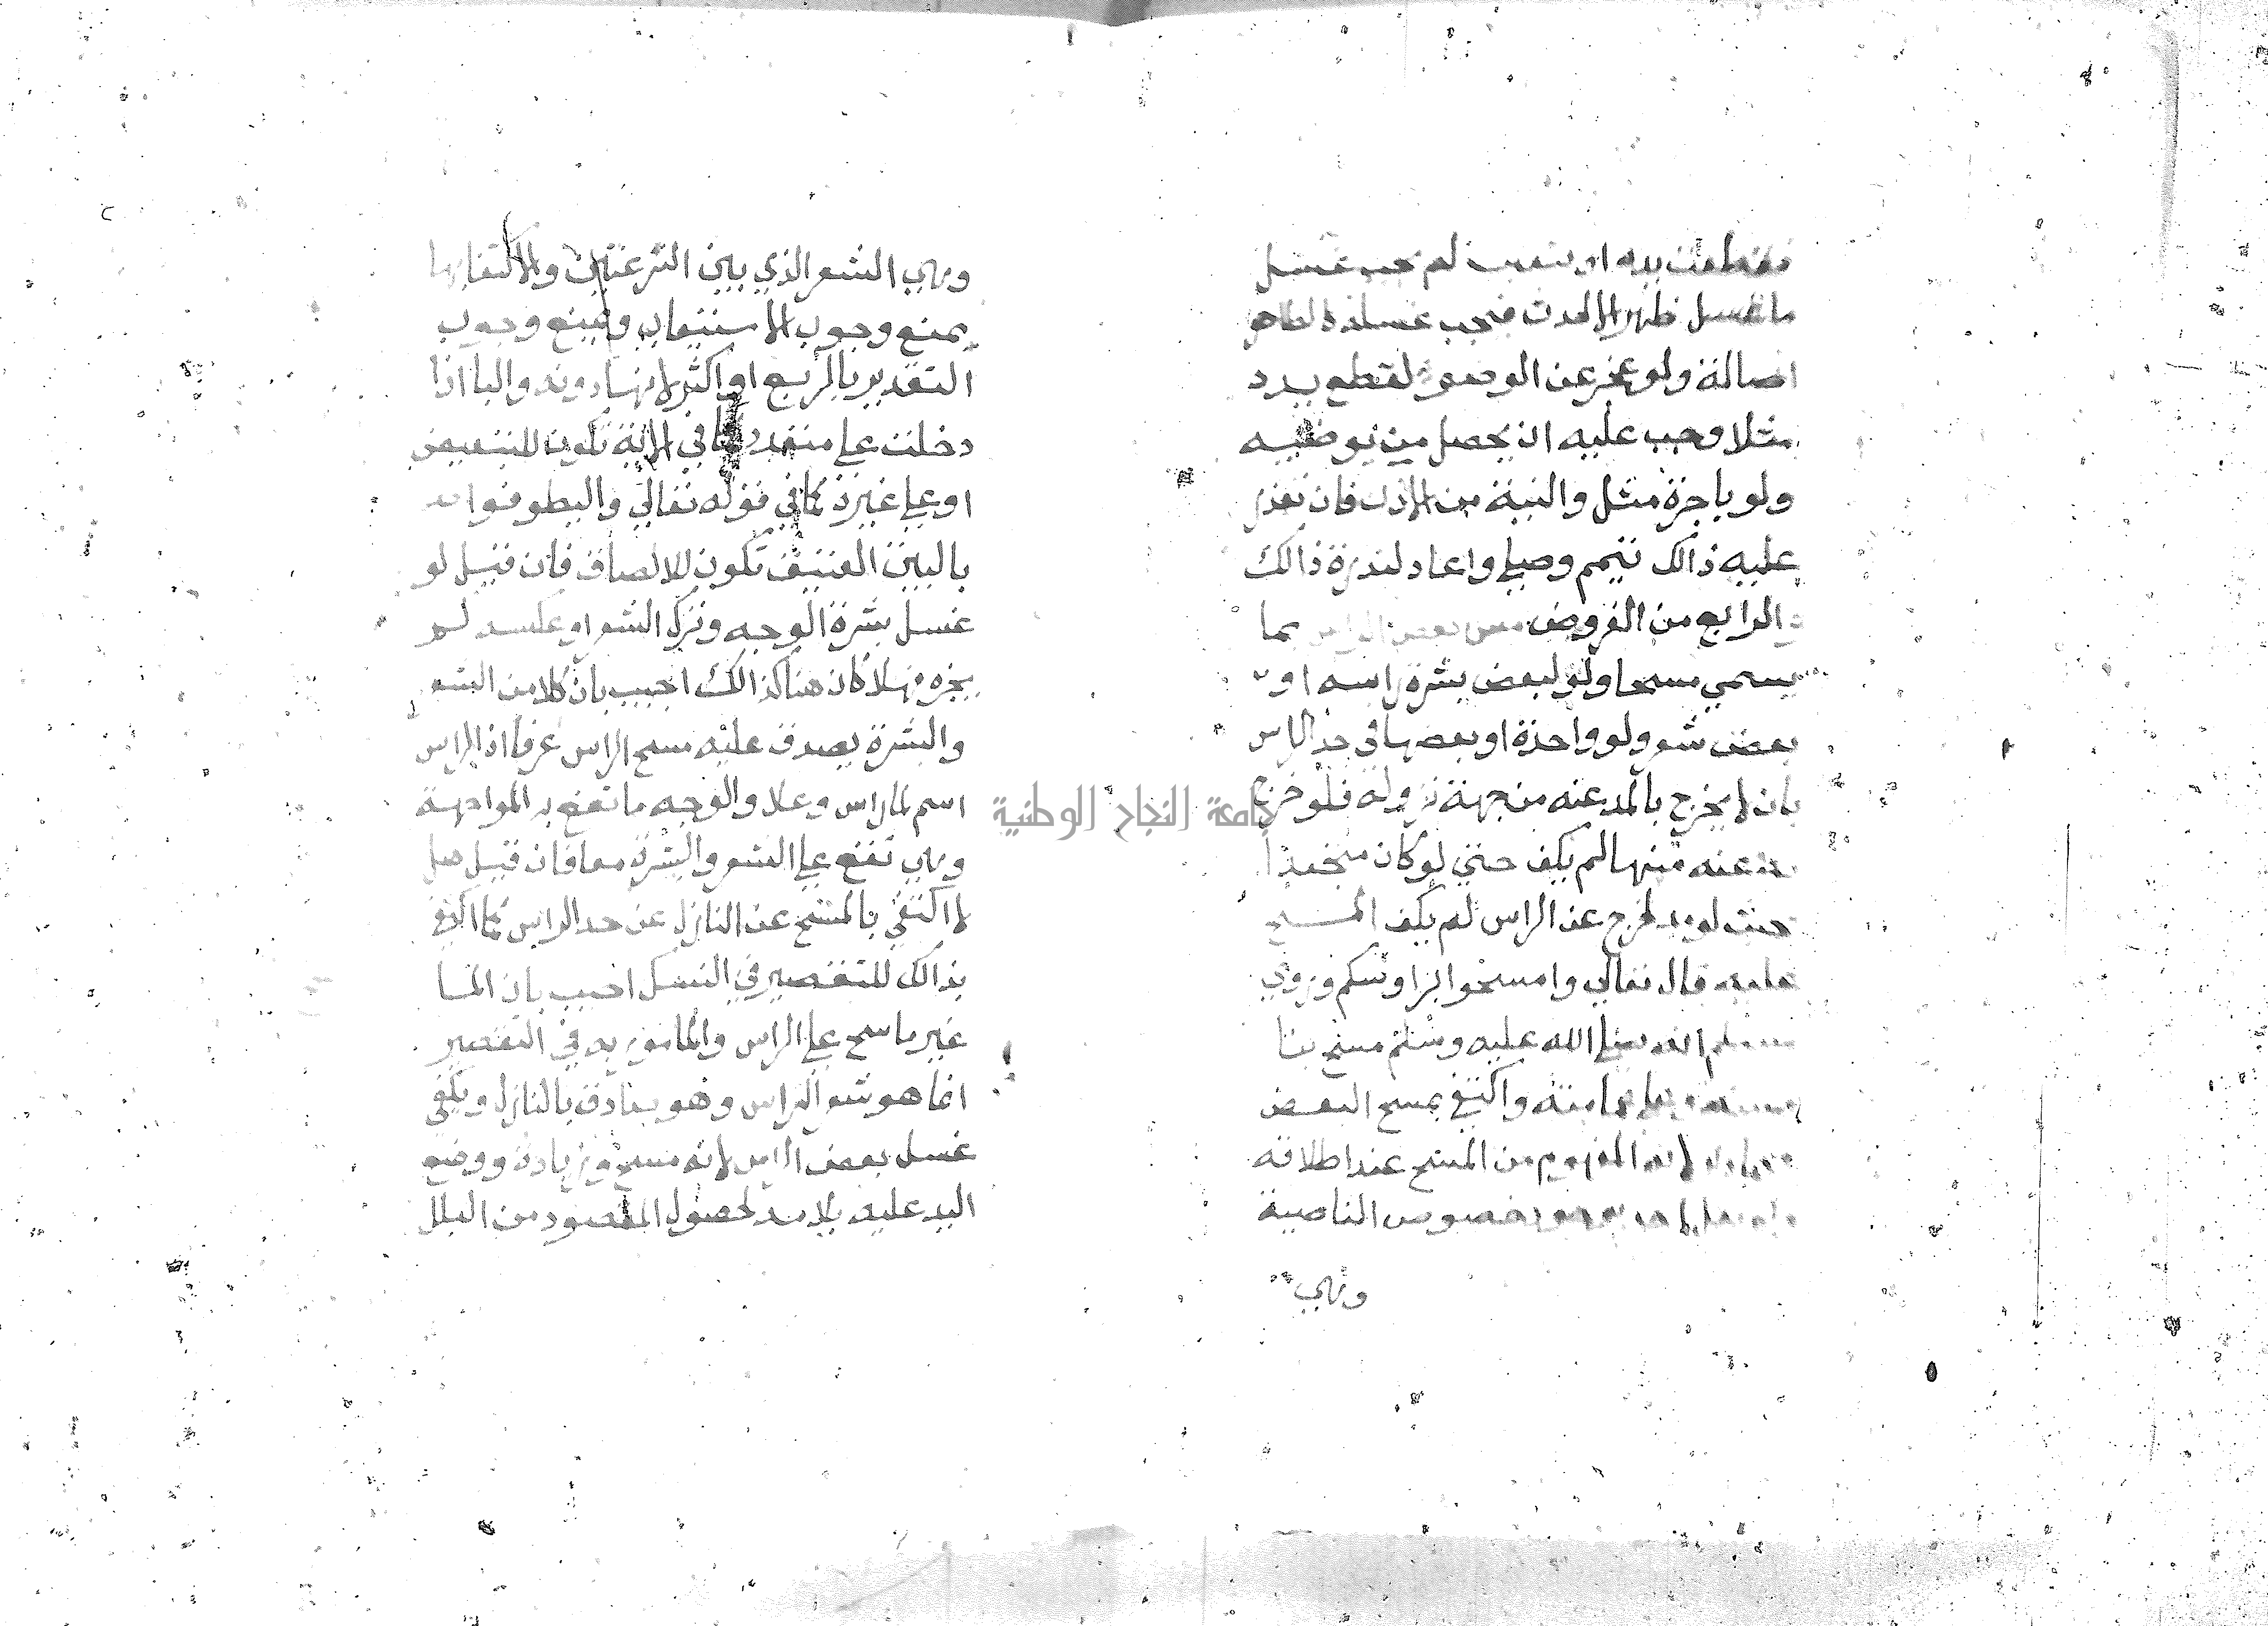 فقطعت يده او لم يجب غسل
ما غسل ظهر الا لحدث فيجب غسله كالظاهر
اصالة ولو عجز عن الوضوء لقطع يده
مثلا وجب عليه ان يحصل من يوضيه
ولو باجرة مثل والنية من الاذن فان تعذر
عليه ذالك تيمم وصلي واعاد لندرة ذالك
و الرابع من الفروض مسح بعض الراس بما
يسمي مسحا ولو لبعض بشرة راسه او
بعض شعر ولو واحدة او بعضها في حد الراس
بان لا يخرج بالمد عنه من جهة نزوله فلو خرج
به عنه منها لم يكف حتي لو كان متجعدا
حيث لو مد لخرج عن الراس لم يكف المسح
عليه قال تعالي وامسحوا برا وسكم وروي
مسلم انه صلي الله عليه وسلم مسح بنا
صيته وعلي عمامته واكتفي بمسح البعض
لانه المفهوم من المسح عند اطلاقه
ولم يقل احد بوجوب خصوص الناصية
وهي
وهي الشعر الذي بين النزعتين والاكتفا بها
يمنع وجوب الاستيعاب ويمنع وجوب
التقدير بالربع او اكثر لانها دونه والبا اذا
دخلت علي متعدد كما في الاية تكون للتبعيض
او علي غيره كما في قوله تعالي واليطوفوا
بالبيت العتيق تكون للالصاق فان قيل لو
غسل بشرة الوجه وترك الشعر او عكسه لم
يجزه فهلا كان هنا كذالك اجيب بان كلا من الشعر
والبشرة يصدق عليه مسح الراس عرفا اذ الراس
اسم لما راس وعلا والوجه ما تقع به المواجهة
وهي تقع علي الشعر والبشرة معا فان قيل هل
لا اكتفي بالمسح عن النازل عن حد الراس كما اكتفي
بذالك للتقصير في النسك اجيب بان الما
غير ماسح علي الراس والمامور به في التقصير
انما هو شعر الراس وهو صادق بالنازل ويكفي
غسل بعض الراس لانه مسح وزيادة ووضع
اليد عليه بلا مد لحصول المقصود من البلل
جامعة النجاح الوطنية